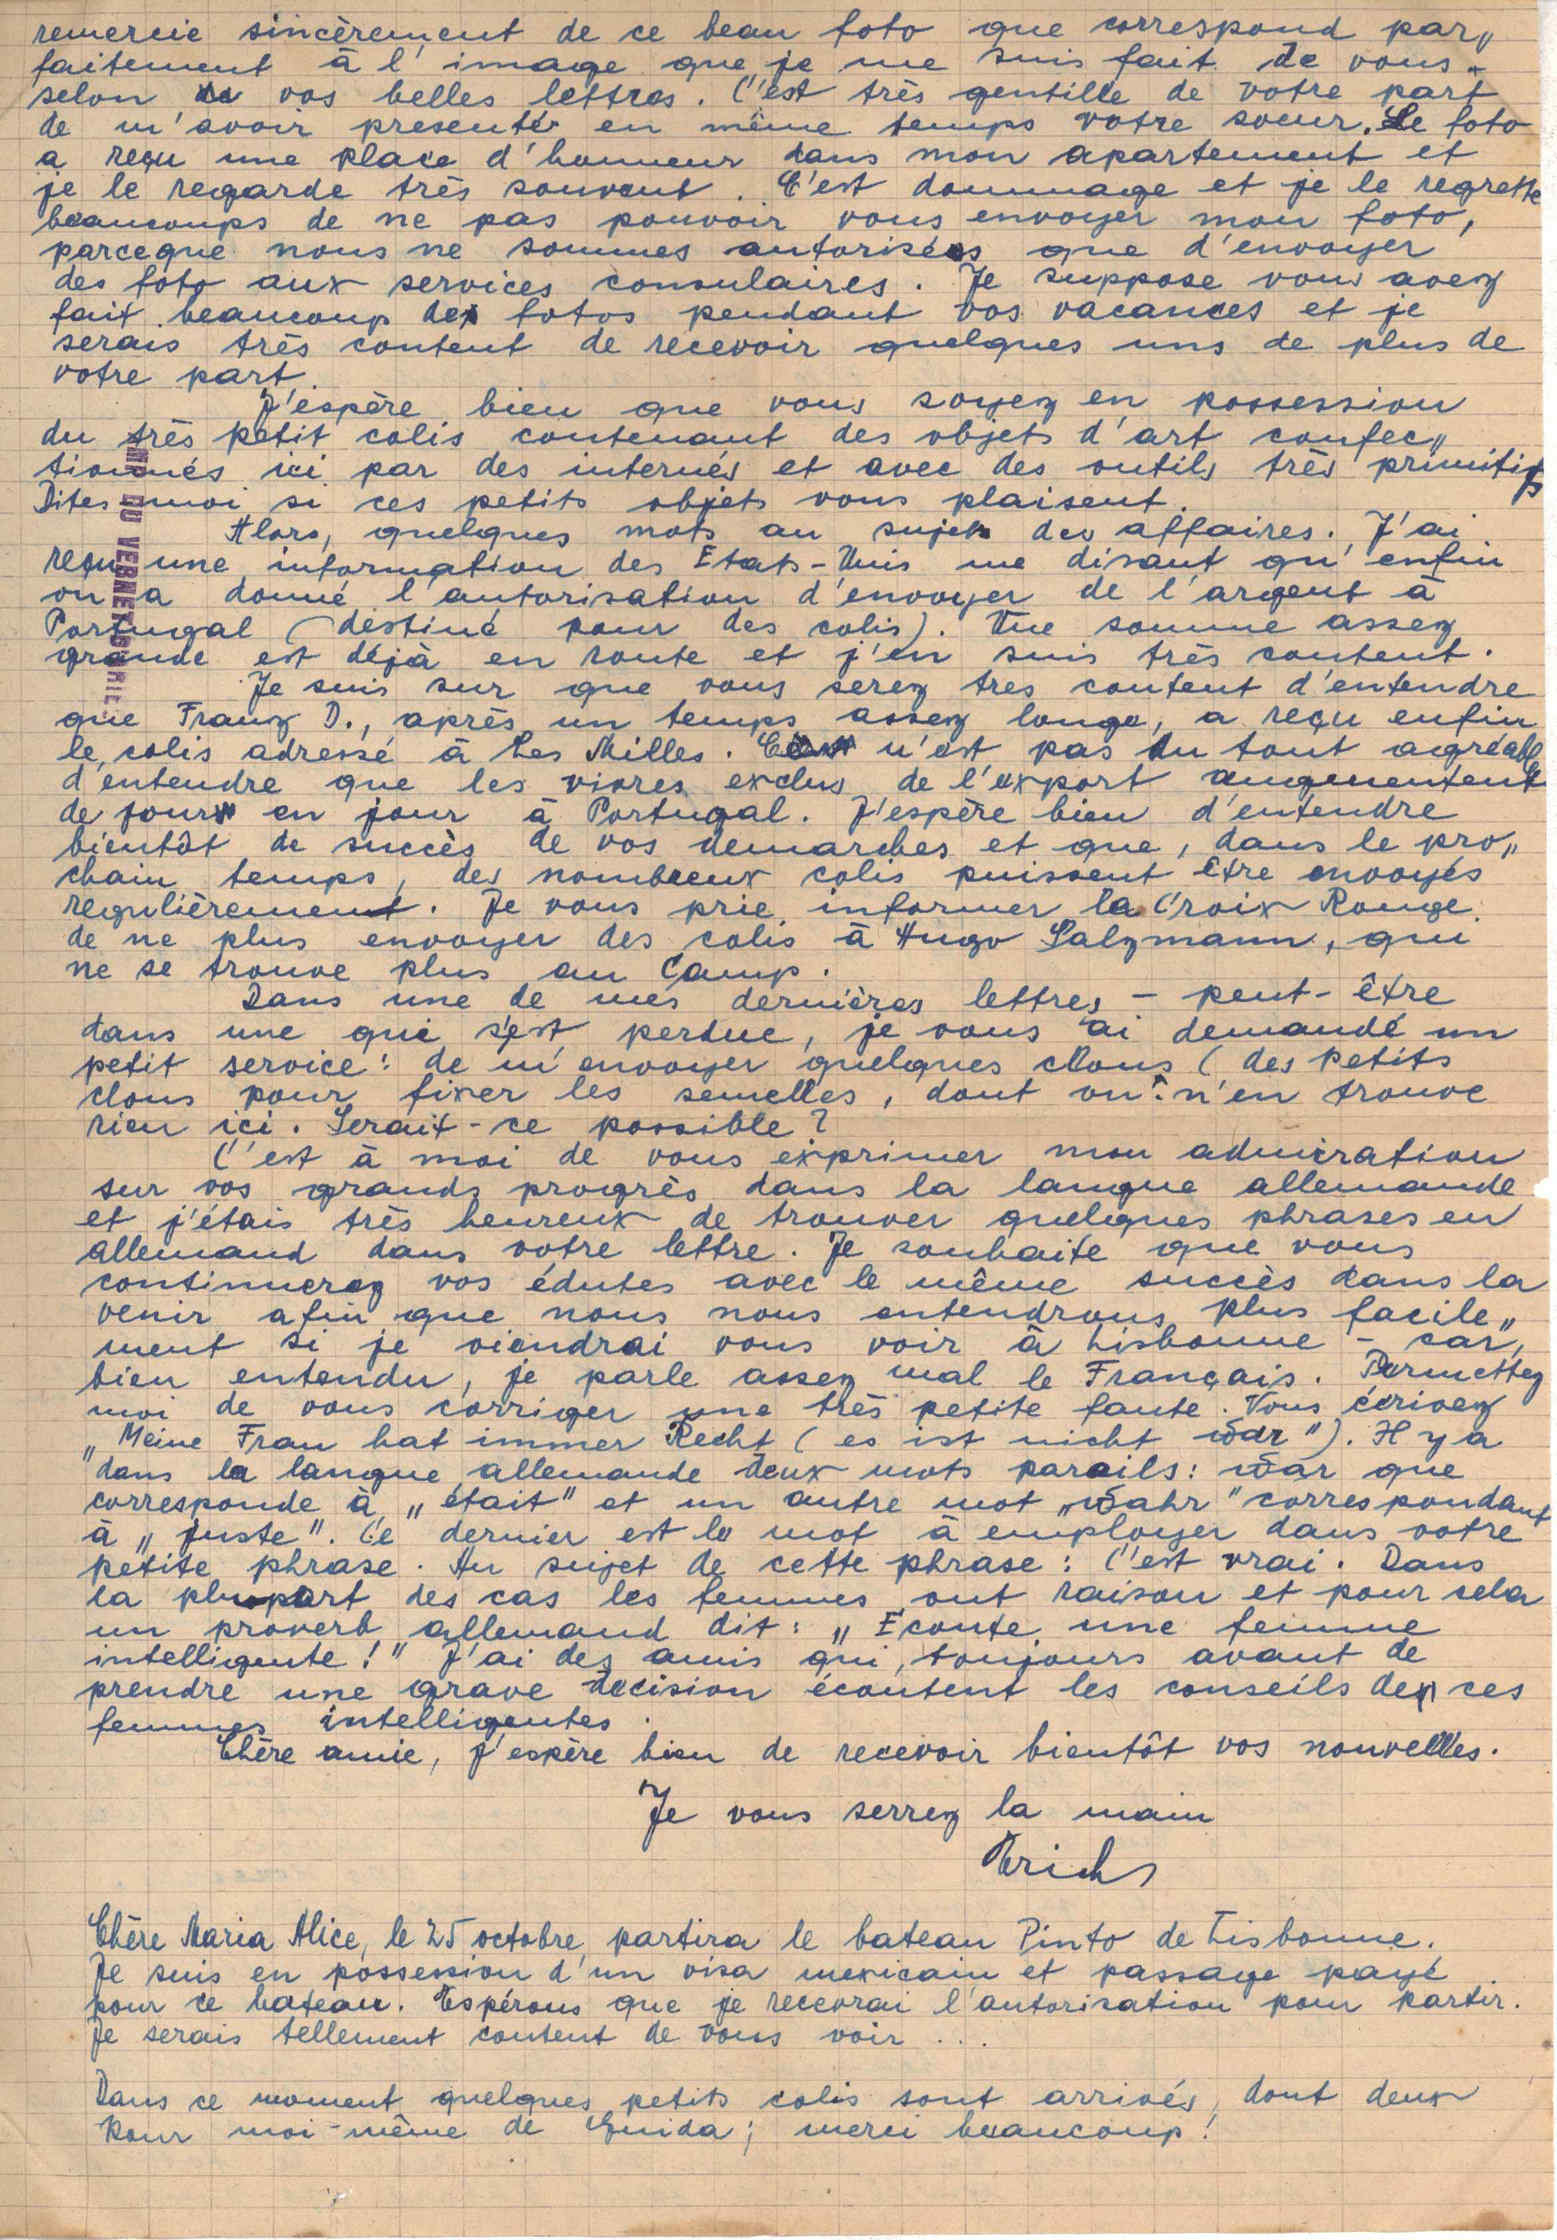 remercie sincèrement de ce beau foto que correspond par„
faitement à l'image que je me suis fait de vous
selon vos belles lettres. C'est très gentille de votre part
de m'avoir presenté en même temps votre soeur. Le foto
a reçu une place d'honneur dans mon apartement et
je le regarde très souvent. C'est dommage et je le regrette
beaucoups de ne pas pouvoir vous envoyer mon foto,
parceque nous ne sommes autorisés que d'envoyer
des foto aux services consulaires. Je suppose vous avez
fait beaucoup de fotos pendant vos vacances et je
serais très content de recevoir quelques uns de plus de
votre part.
J'espère bien que vous soyez en possession
du très petit colis contenant des objets d'art confec„
tionnés ici par des internés et avec des outils très primitifs
Dites moi si ces petits objets vous plaisent.
Alors, quelques mots au sujet des affaires. J'ai
reçu une information des Etats-Unis me disant qu'enfin
on a donné l'autorisation d'envoyer de l'argent à
Portugal (destiné pour des colis). Une somme assez
grande est déjà en route et j'en suis très content.
Je suis sur que vous serez tres content d'entendre
que Franz D., après un temps assez longe, a reçu enfin
le colis adressé à Les Milles. Ce n'est pas du tout agréable
d'entendre que les vivres exclus de l'export augmentent
de jour en jour à Portugal. J'espère bien d'entendre
bientôt de succès de vos demarches et que, dans le pro„
chain temps, des nombreux colis puissent être envoyés
regulièrement. Je vous prie informer la Croix Rouge
de ne plus envoyer des colis à Hugo Salzmann, qui
ne se trouve plus au Camp.
Dans une de mes dernières lettres - peut-être
dans une qui s'est perdue, je vous ai demandé un
petit service: de m'envoyer quelques clous (des petits
clous pour fixer les semelles, dont on n'en trouve
rien ici. Serait-ce possible?
C'est à moi de vous exprimer mon admiration
sur vos grands progrès dans la langue allemande
et j'étais très heureux de trouver quelques phrases en
allemand dans votre lettre. Je souhaite que vous
continuerez vos édutes avec le même succès dans la
venir afin que nous nous entendrons plus facile„
ment si je viendrai vous voir à Lisbonne - car,
bien entendu, je parle assez mal le Français. Permettez
moi de vous corriger une très petite faute. Vous écrivez
„Meine Frau hat immer Recht (es ist nicht war"). Il y a
dans la langue allemande deux mots pareils: war que
corresponde à „était" et un autre mot „wahr" correspondant
à „juste". Ce dernier est le mot à employer dans votre
petite phrase. Au sujet de cette phrase: C'est vrai. Dans
la plupart des cas les femmes ont raison et pour cela
un proverb allemand dit: „Ecoute une femme
intelligente!" J'ai des amis qui, toujours avant de
prendre une grave decision écoutent les conseils de ces
femmes intelligentes.
Chère amie, j'espère bien de recevoir bientôt vos nouvelles.
Je vous serrez la main
Erich
Chère Maria Alice, le 25 octobre partira le bateau Pinto de Lisbonne.
Je suis en possession d'un visa mexicain et passage payé
pour ce bateau. Espérons que je recevrai l'autorisation pour partir.
Je serais tellement content de vous voir ...
Dans ce moment quelques petits colis sont arrivés, dont deux
pour moi-même de Guida; merci beaucoup!
DU VERNET